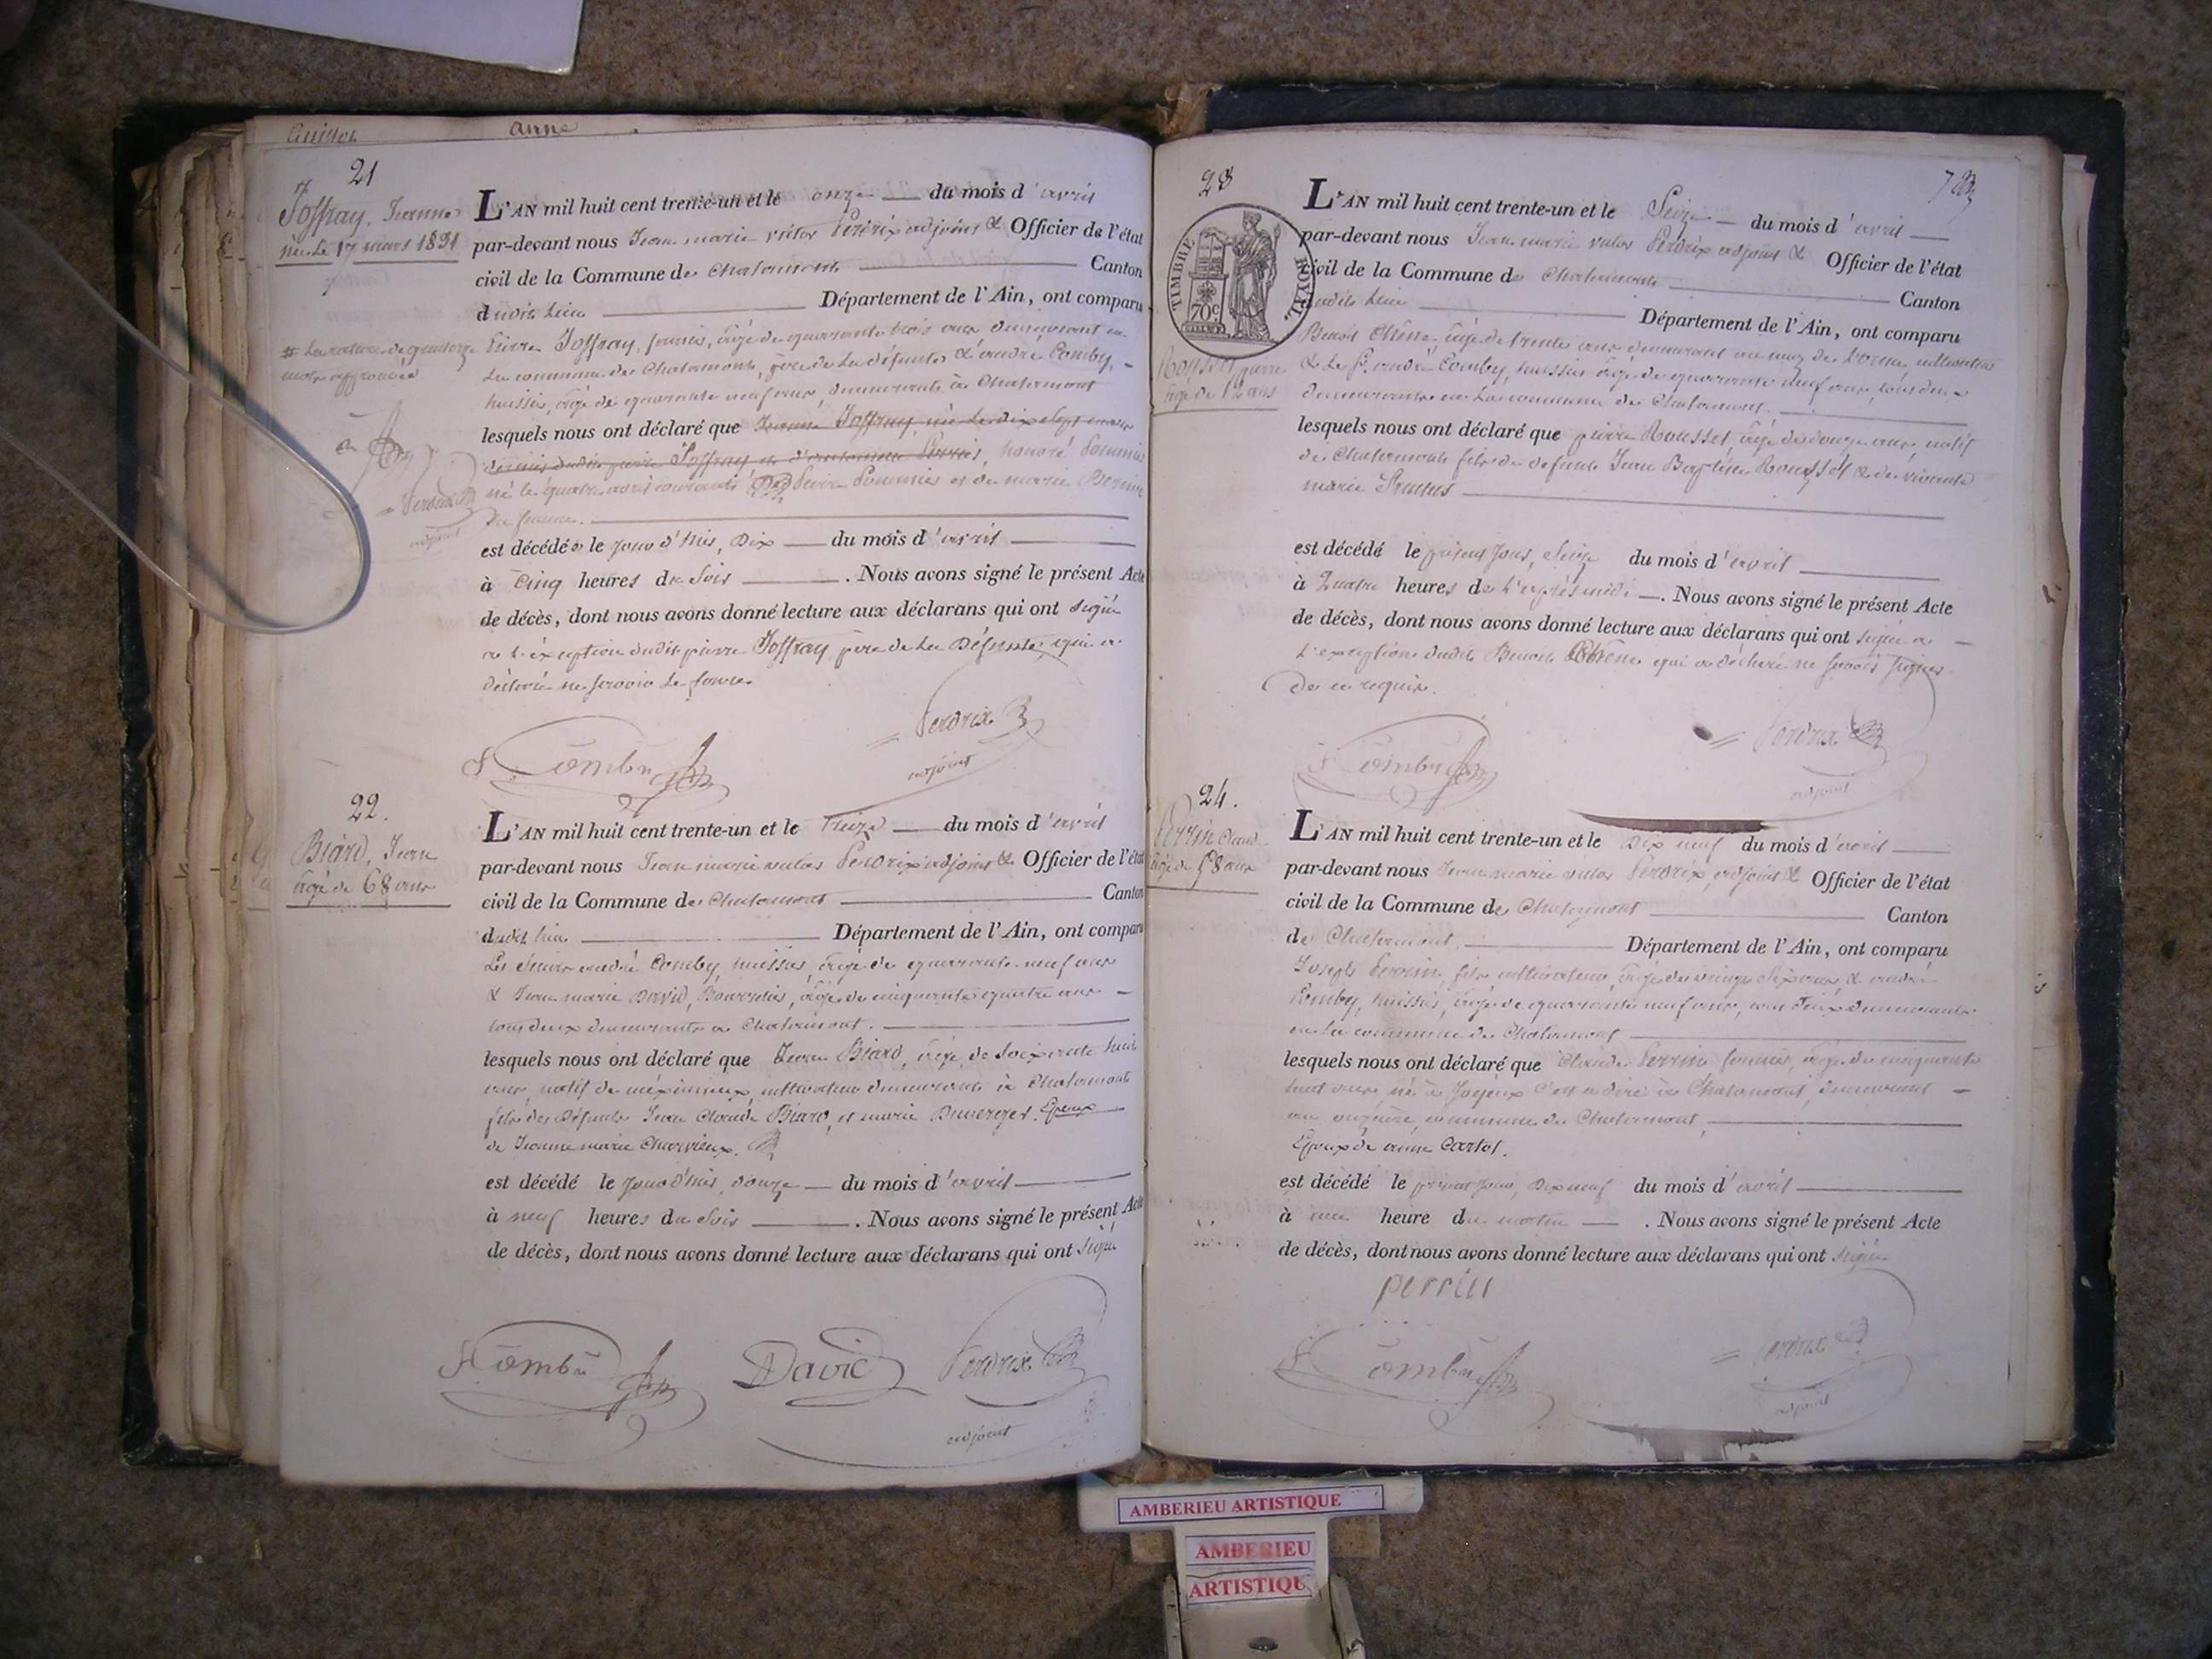 anne
21
Joffray, Jeanne
née Le 17 mars 1831
# La rature de quatorze
mots approuvée
Perdrix
adjoint
L'AN mil huit cent trente-un et le onze du mois d'avril
par-devant nous Jean marie victor Perdrix adjoint & Officier de l'état
civil de la Commune de Chalamont Canton
dudit Lieu Département de l'Ain, ont comparu
Pierre Joffray, fermier, âgé de quarante trois ans demeurant en
La commune de Chalamont, père de La défunte & andré Comby,
huissier, âgé de quarante neuf ans, demeurant à Chalamont
lesquels nous ont déclaré que Jeanne Joffray, née Le dix Sept mars
dernier dudit pierre Joffray et d'antoinette honoré Pommier
né le quatre avril courant, de Pierre Pommier et de marie Bernin
Sa femme.
est décédée le jour d'hier, Dix du mois d'avril
à Cinq heures du Soir . Nous avons signé le présent Acte
de décès, dont nous avons donné lecture aux déclarans qui ont signé
a l'exception dudit pierre Joffray père de La Défunte, qui a
déclaré ne savoir Le faire.
Comby
Perdrix
adjoint
22.
Biard, Jean
âgé de 68 ans
L'AN mil huit cent trente-un et le Treize du mois d'avril
par-devant nous Jean marie victor Perdrix adjoint & Officier de l'état
civil de la Commune de Chalamont Canton
dudit lieu Département de l'Ain, ont comparu
Les Sieurs andré Comby, huissier, âgé de quarante-neuf ans
& Jean marie David, Bourrelier, âgé de cinquante quatre ans
tous deux demeurants a Chalamont.
lesquels nous ont déclaré que Jean Biard, âgé de Soixante huit
ans, natif de méximieux, cultivateur demeurant à Chalamont
fils des Défunts Jean Claude Biard, et marie Duverger. Epoux
de Jeanne marie Charvieux.
est décédé le jour d'hier, douze du mois d'avril
à neuf heures du Soir . Nous avons signé le présent Acte
de décès, dont nous avons donné lecture aux déclarans qui ont signé
Comby David Perdrix
adjoint
23
TIMBRE ROYAL
70c
Rousset pierre
âgé de 12 ans
L'AN mil huit cent trente-un et le Seize du mois d'avril
par-devant nous Jean marie victor Perdrix adjoint & Officier de l'état
civil de la Commune de Chalamont Canton
dudit Lieu Département de l'Ain, ont comparu
Benoit Chêne, âgé de trente ans demeurant au maz de L'orme, cultivateur
& Le Sr. andré Comby, huissier âgé de quarante neuf ans, tous deux
demeurants en La commune de Chalamont.
lesquels nous ont déclaré que pierre Rousset, âgé de douze ans, natif
de Chalamont fils de défunt Jean Baptiste Rousset & de vivante
marie
est décédé le présent jour, Seize du mois d'avril
à Quatre heures de l'après midi . Nous avons signé le présent Acte
de décès, dont nous avons donné lecture aux déclarans qui ont signé a
L'exception dudit Benoit Chêne qui a déclaré ne savoir signer
de ce requis.
Comby
Perdrix
adjoint
24.
Perrin Claude
âgé de 58 ans
L'AN mil huit cent trente-un et le Dix neuf du mois d'avril
par-devant nous Jean marie victor Perdrix, adjoint & Officier de l'état
civil de la Commune de Chalamont Canton
de Chalamont, Département de l'Ain, ont comparu
Joseph Perrin, fils cultivateur, âgé de vingt Six ans, & andré
Comby, huissier, âgé de quarante neuf ans, tous Deux demeurants
en La commune de Chalamont
lesquels nous ont déclaré que Claude Perrin fermier, âgé de cinquante
huit ans, né à Joyeux C'est a dire à Chalamont, demeurant
au commune de Chalamont,
Epoux de anne Cartot.
est décédé le présent jour, Dix neuf du mois d'avril
à une heure du matin . Nous avons signé le présent Acte
de décès, dont nous avons donné lecture aux déclarans qui ont signé
perrin
Comby
Perdrix
adjoint
AMBERIEU ARTISTIQUE
AMBERIEU
ARTISTIQU